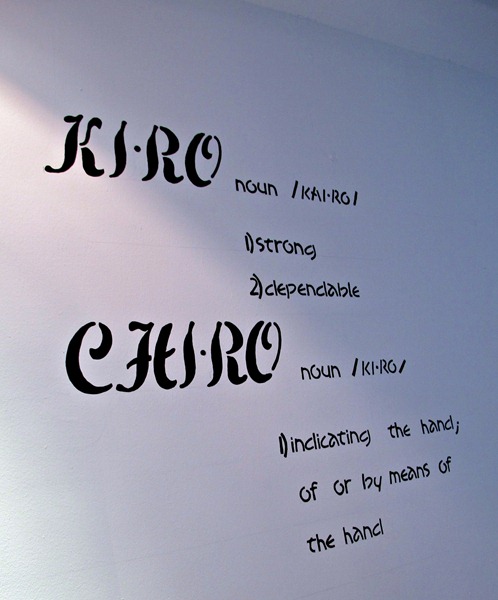 KI·RO noun /KAI·RO/
1)strong
2)dependable
CHI·RO noun /KI·RO/
1)indicating the hand;
of or by means of
the hand